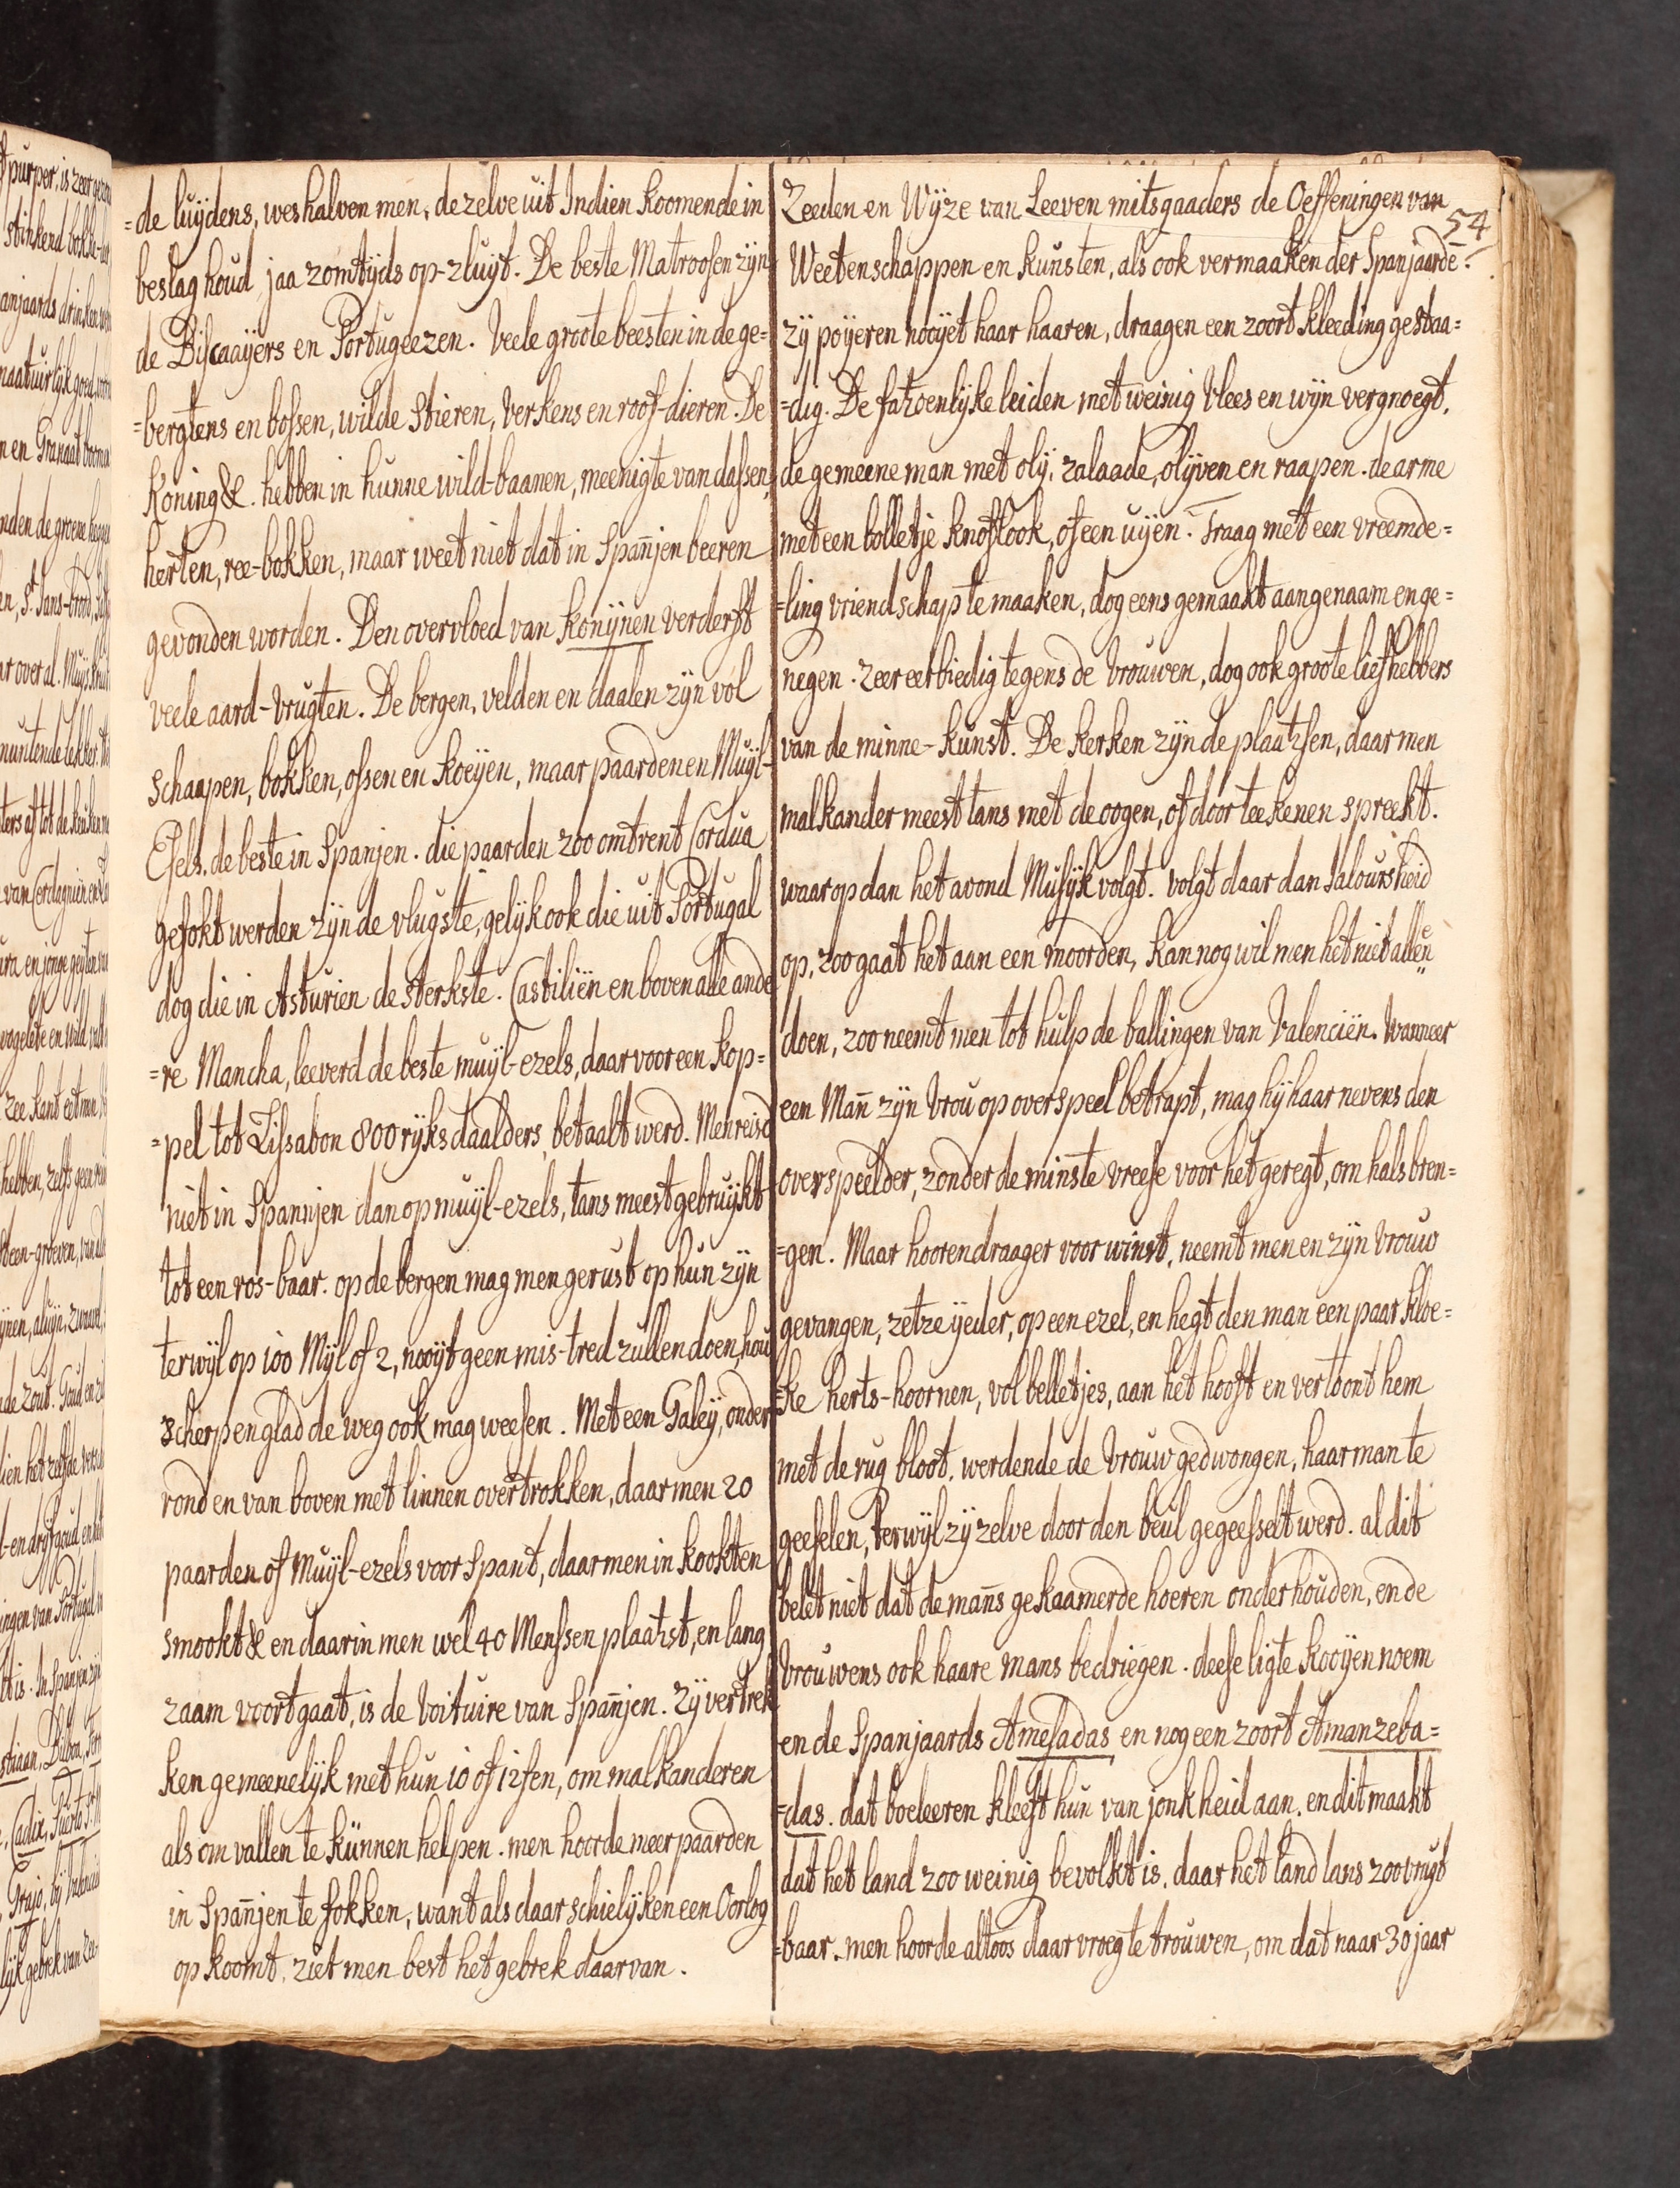 =de luijdens, weshalven men, dezelve uit Indien koomende in
beslag houd, jaa zomtijds op-zluijt. De beste Matroosen zijn
de Biscaaijers en Portugeezen. Veele groote beesten in de ge=
=bergtens en bossen, wilde stieren, Verkens en roof-dieren. De
Koning &. hebben in hunne wild-baanen, meenigte van dassen,
herten, ree-bokken, maar weet niet dat in Spañjen beeren
gevonden worden. Den overvloed van Konijnen verderft
veele aard-vrugten. De bergen, velden en daalen zijn vol
schaapen, bokken, ossen en koeijen, maar paarden en Muijl-
Esels, de beste in Spanjen. die paarden zoo omtrent Cordua
gefokt werden zijn de vlugste, gelijk ook die uit Portugal
dog die in Asturien de sterkste. Castiliën en boven alle ande
=re Mancha, leeverd de beste muijl-ezels, daar voor een kop=
=pel tot Lissabon 800 rijksdaalders betaalt werd. Men reisd
niet in Spannjen dan op muijl-ezels, tans meest gebruijkt
tot een ros-baar. op de bergen mag men gerust op hun zijn
terwijl op 100 Mijl of 2, nooijt geen mis-tred zullen doen, hou
scherp en glad de weg ook mag weesen. Met een Galeij, onder
rond en van boven met linnen overtrokken, daar men 20
paarden of Muijl-ezels voor spant, daar men in kookt en
smookt & en daar in men wel 40 Menssen plaatst, en lang
zaam voort gaat, is de Voituire van Spañjen. Zij vertrek
ken gemeenelijk met hun 10 of 12 sen, om malkanderen
als om vallen te künnen helpen. men hoorde meer paarden
in Spañjen te fokken, want als daar schielijken een Oorlog
op koomt, ziet men best het gebrek daar van.
54
Zeeden en Wijze van Leeven mitsgaaders de Oeffeningen van
Weetenschappen en kunsten, als ook vermaaken der Spanjaardē.
zij poijeren nooijet haar haaren, draagen een zoort kleeding gestaa=
=dig. De fatzoenlijke leiden met weinig Vlees en wijn vergnoegt,
de gemeene man met olij, zalaade, olijven en raapen. de arme
met een bolletje knoflook, of een uijen. Traag met een vreemde=
=ling vriendschap te maaken, dog eens gemaakt aangenaam en ge=
negen. Zeer eerbiedig tegens de Vrouwen, dog ook groote liefhebbers
van de minne-kunst. De kerken zijn de plaatsen, daar men
malkander meest tans met de oogen, of door teekenen spreekt.
waar op dan het avond Musijk volgt. volgt daar dan Jaloursheid
op, zoo gaat het aan een moorden, kan nog wil men het niet alleen
doen, zoo neemt men tot hulp de ballingen van Valenciën. Wanneer
een Mañ zijn Vrou op overspeel betrapt, mag hij haar nevens den
overspeelder, zonder de minste vreese voor het geregt, om hals bren=
=gen. Maar hoorendraager voor winst, neemt men en zijn Vrouw
gevangen, zetze ijeder, op een ezel, en hegt den man een paar kloe=
=ke herts-hoornen, vol belletjes, aan het hooft en vertoont hem
met de rug bloot, werdende de Vrouw gedwongen, haar man te
geeselen, terwijl zij zelve door den beul gegeesselt werd. al dit
belet niet dat de mañs gekaamerde hoeren onderhouden, en de
Vrouwens ook haare mans bedriegen. deese ligte kooijen noem
en de Spanjaards Amesadas en nog een zoort Amanzeba=
=das. dat boeleeren kleeft hun van jonkheid aan, en dit maakt
dat het land zoo weinig bevolkt is, daar het land lans zoo vrugt
=baar. men hoorde altoos daar vroeg te trouwen, om dat naar 30 jaar